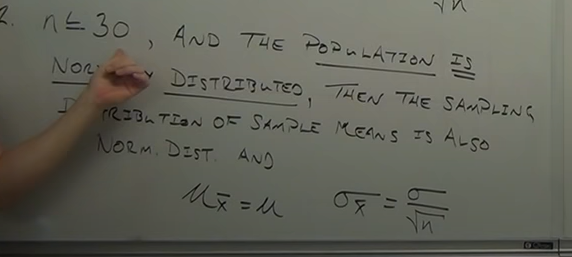 √n
2. n ≤ 30, AND THE POPULATION IS
DISTRIBUTED, THEN THE SAMPLING
OF SAMPLE MEANS IS ALSO
NORM. DIST. AND
μx̄ = μ σx̄ = σ/√n